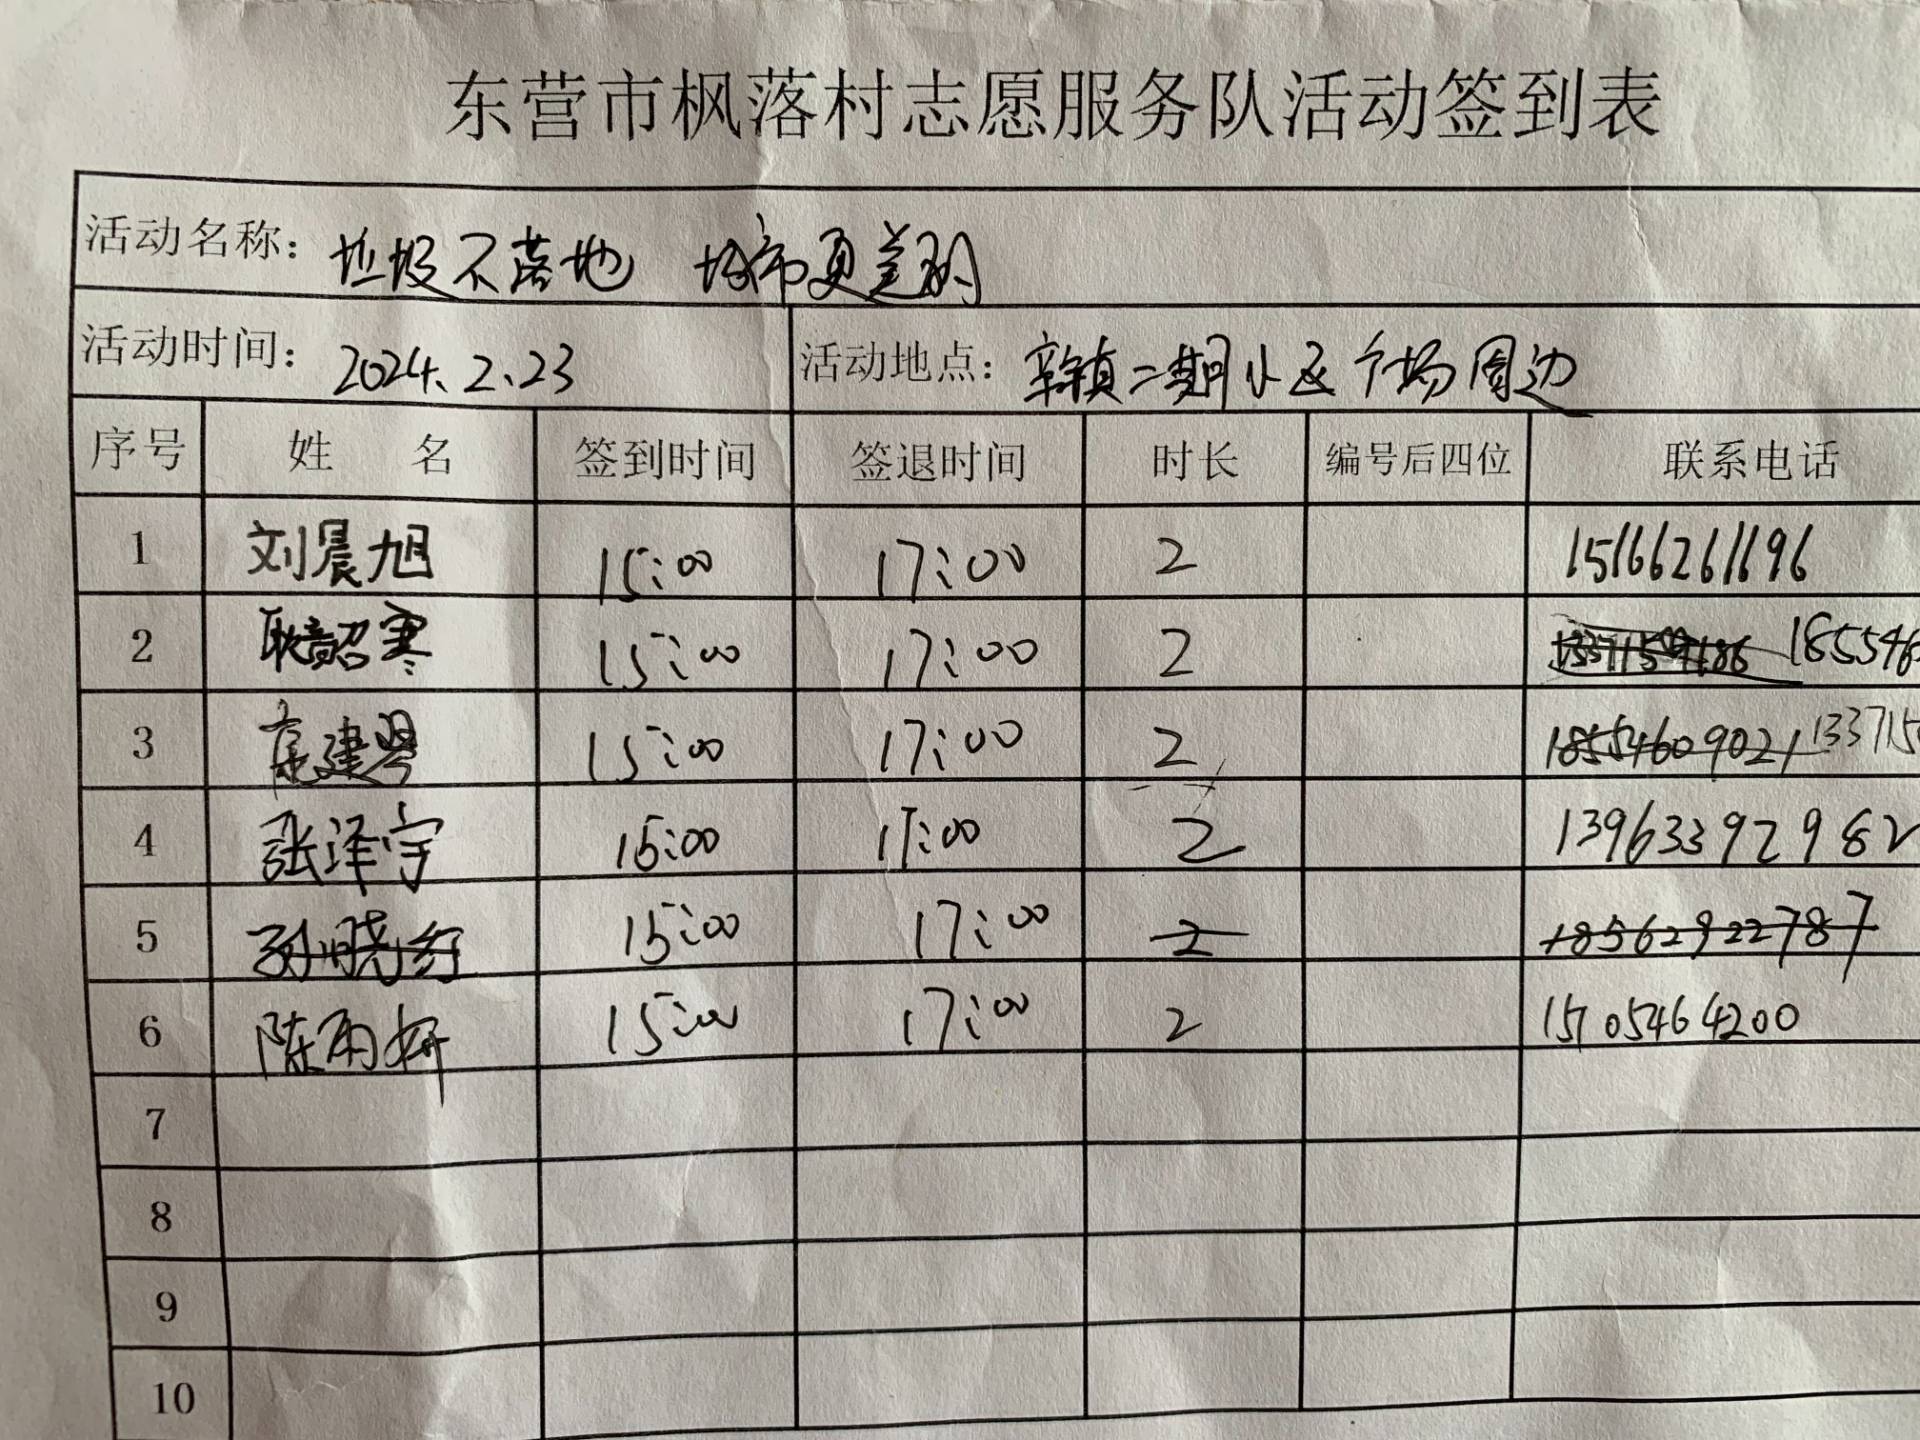 东营市枫落村志愿服务队活动签到表
活动名称：垃圾不落地 城市更美丽
活动时间：2024.2.23 活动地点：辛镇二期小区广场周边
序号 姓 名 签到时间 签退时间 时长 编号后四位 联系电话
1 刘晨旭 15:00 17:00 2 15166261196
2 耿韶寒 15:00 17:00 2 185546
3 15:00 17:00 2 18554609021 133715
4 张泽宇 15:00 17:00 2 13963392982
5 孙晓红 15:00 17:00 2 18562922787
6 陈雨妍 15:00 17:00 2 15705464200
7
8
9
10